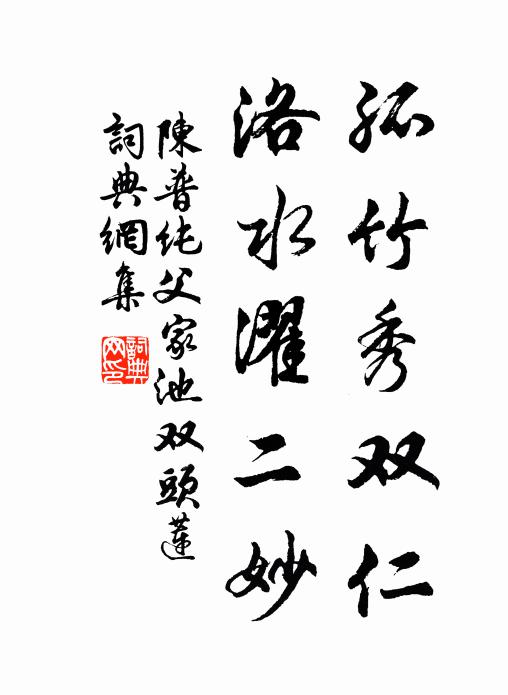 孤竹秀双仁
洛水濯二妙
陳普纯父家池双頭蓮
詞典網集
詞典网印